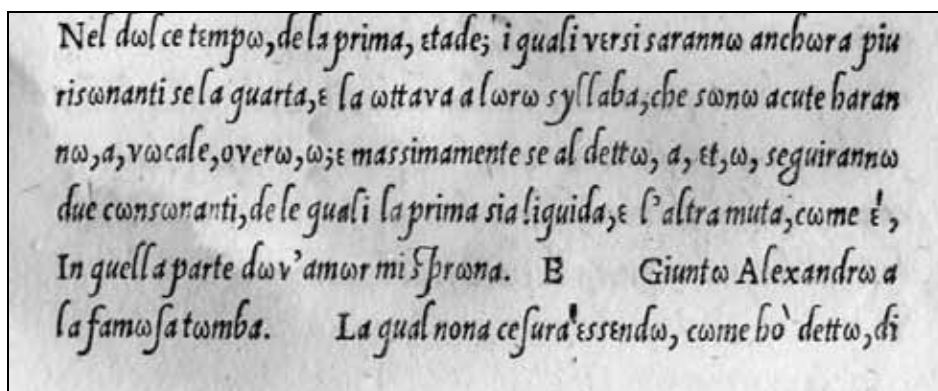 Nel dωlce tεmpω, de la prima, εtade; i quali vεrsi sarannω anchωra piu
risωnanti se la quarta, ε la ωttava a lωrω syllaba, che sωnω acute haran
nω, a, vωcale, overω, ω; ε massimamente se al dettω, a, εt, ω, seguirannω
due cωnsωnanti, de le quali la prima sia liquida, ε l'altra muta, cωme ε',
In quella parte dωv'amωr mi ſprωna. E Giuntω Alexandrω a
la famωſa tωmba. La qual nona ceſura' εssεndω, cωme ho` dettω, di